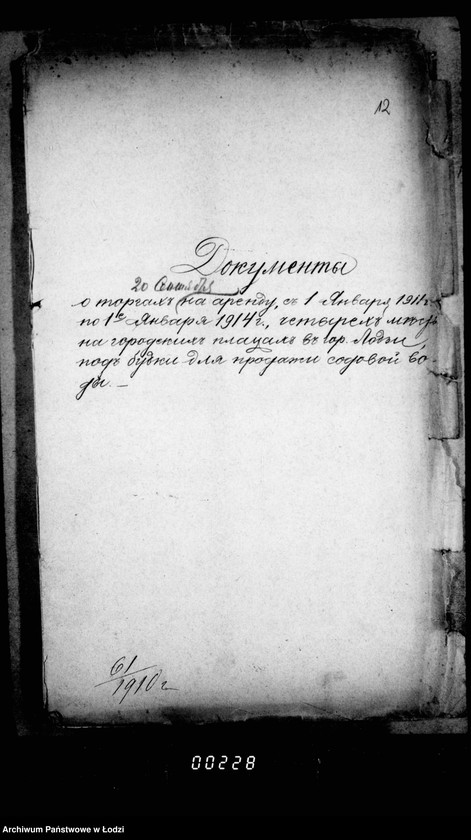 12
Документы
20 Сентября
о торгахъ на аренду, съ 1 Января 1911 г.
по 1е Января 1914 г., четырехъ мѣстъ
на городскихъ плацахъ въ гор. Лодзи,
подъ будки для продажи содовой во-
ды. —
61/1910 г.
00228
Archiwum Państwowe w Łodzi